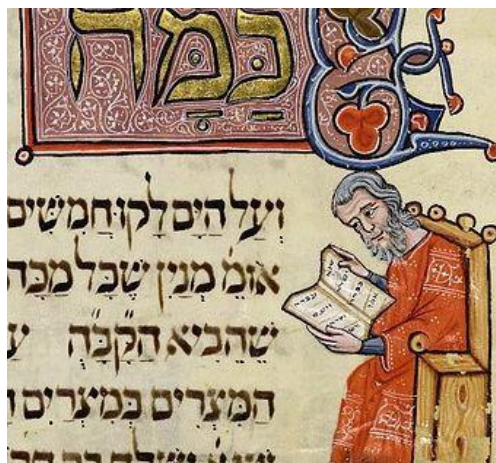 כַּמָּה
וְעַל הַיָּם לָקוּ חֲמִשִּׁים
אומֵ מִנַּיִן שֶׁכָּל מַכָּה
שֶׁהֵבִיא הַקָּבָּה
הַמִּצְרִים בְּמִצְרַיִם